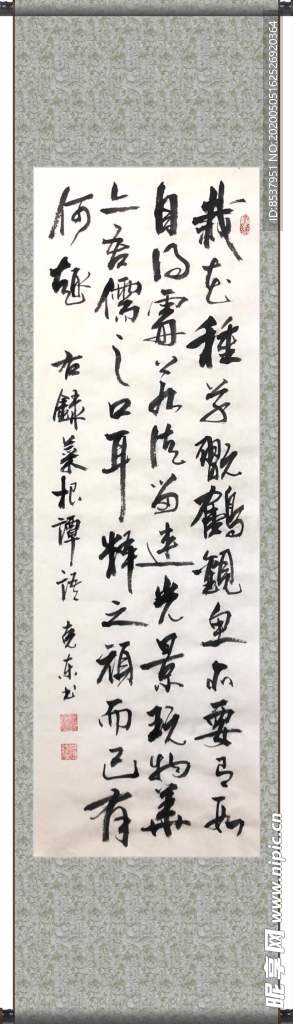 栽花種竹翫鶴觀魚亦要有段
自得處若徒留連光景玩物華
亦吾儒之口耳釋之頑而已有
何趣
右録菜根譚語
克东书
ID:8537951 NO:20200505162526920364
昵享网 www.nipic.cn